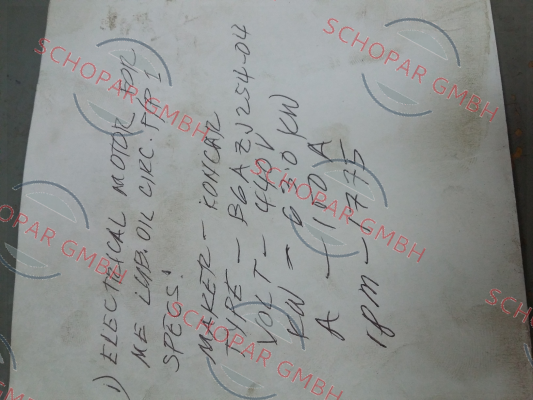 1) ELECTRICAL MOTOR FOR
ME LUB. OIL CIRC. P/P 1
SPECS:
MAKER - KONCAR
TYPE - B6AZJ254-04
VOLT - 440V
KW - 63.0 KW
A - 100A
rpm - 1775
SCHOPAR GMBH
SCHOPAR GMBH
SCHOPAR GMBH
SCHOPAR GMBH
SCHOPAR GMBH
SCHOPAR GMBH